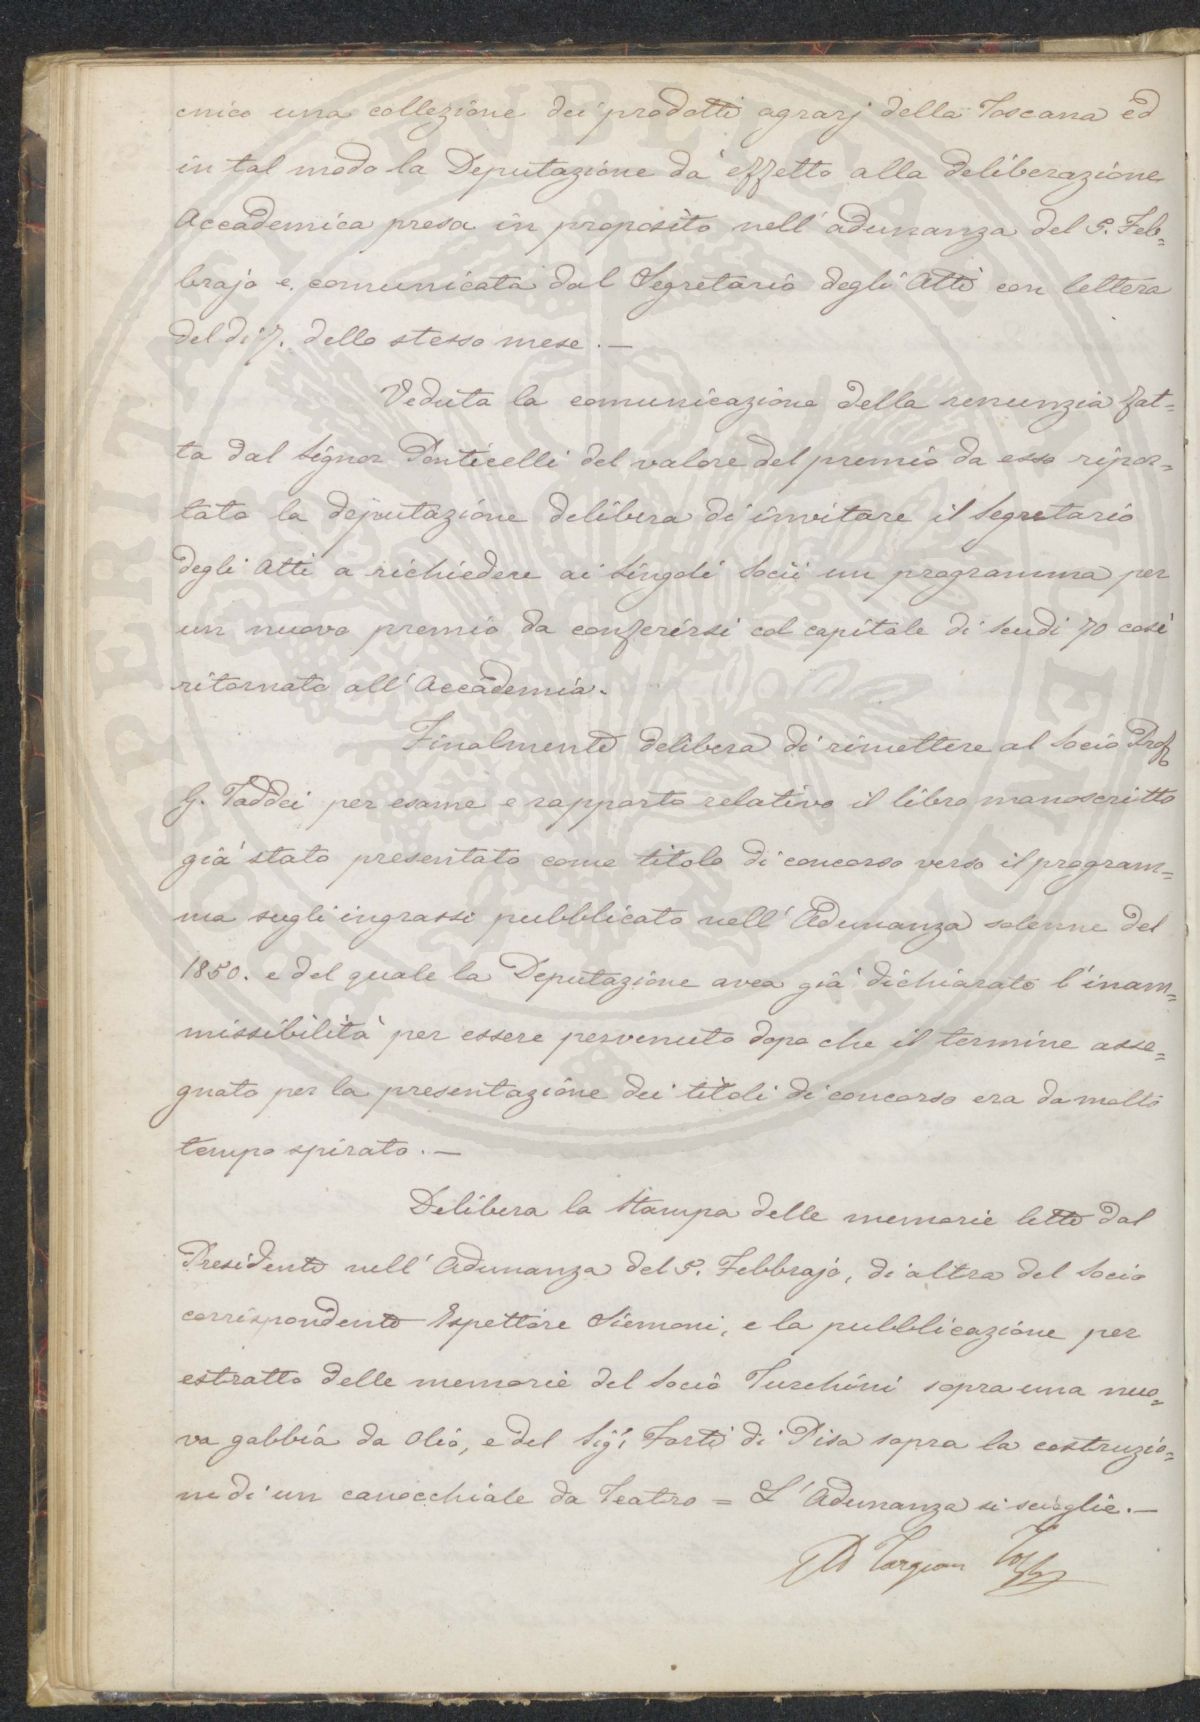 cnico una collezione dei prodotti agrarj della Toscana ed
in tal modo la Deputazione dà effetto alla deliberazione
Accademica presa in proposito nell'adunanza del 5. Feb=
brajo e comunicata dal Segretario degli Atti con lettera
del dì 7. dello stesso mese. —
Veduta la comunicazione della renunzia fat=
ta dal Signor Ponticelli del valore del premio da esso ripor=
tato la deputazione delibera di invitare il Segretario
degli Atti a richiedere ai singoli Socii un programma per
un nuovo premio da conferirsi col capitale di scudi 70 così
ritornato all'Accademia.
Finalmente delibera di rimettere al Socio Prof
G. Taddei per esame e rapporto relativo il libro manoscritto
già stato presentato come titolo di concorso verso il program=
ma sugli ingrassi pubblicato nell'Adunanza solenne del
1850. e del quale la Deputazione avea già dichiarato l'inam=
missibilità per essere pervenuto dopo che il termine asse=
gnato per la presentazione dei titoli di concorso era da molto
tempo spirato. —
Delibera la Stampa delle memorie lette dal
Presidente nell'Adunanza del 5. Febbrajo, di altra del Socio
corrispondente Ispettore Siemoni, e la pubblicazione per
estratto delle memorie del Socio Turchini sopra una nuo=
va gabbia da Olio, e del Sig.r Forti di Pisa sopra la costruzio=
ne di un canocchiale da Teatro = L'Adunanza si scioglie. —
Targioni Tozz
PUBLICAE
PROSPERITATI
AUGENDAE